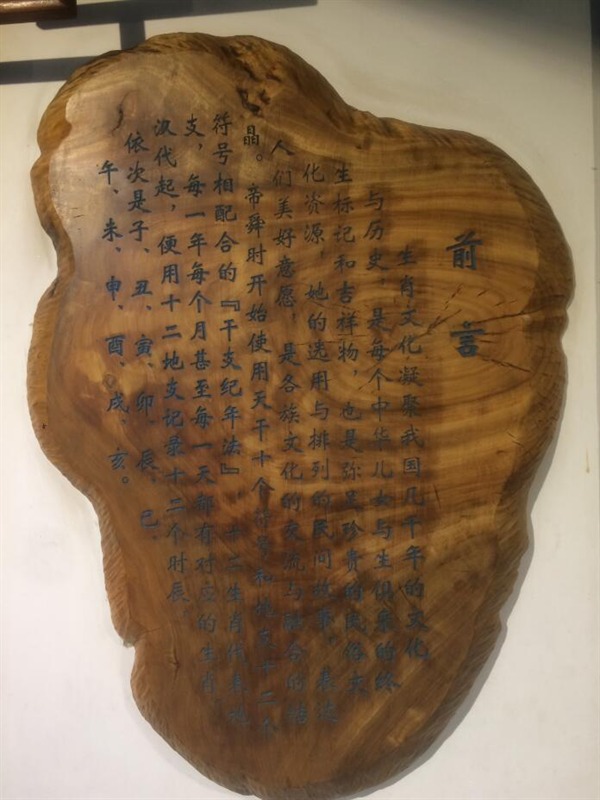 前言
生肖文化凝聚我国几千年的文化
与历史，是每个中华儿女与生俱来的终
生标记和吉祥物，也是弥足珍贵的民俗文
化资源，她的选用与排列的民间故事，表达
人们美好意愿，是各族文化的交流与融合的结
晶。帝舜时开始使用天干十个符号和地支十二个
符号相配合的『干支纪年法』十二生肖代表地
支，每一年每个月甚至每一天都有对应的生肖。
汉代起，便用十二地支记录十二个时辰。
依次是子、丑、寅、卯、辰、巳、
午、未、申、酉、戌、亥。